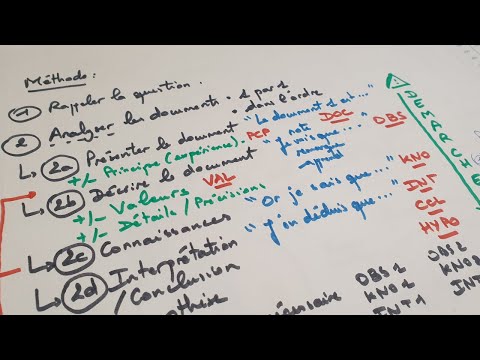 Méthode :
1 Rappeler la question.
2 Analyser les documents 1 par 1 dans l'ordre
2a Présenter le document "Le document 1 est..." DOC
+/- Principe (expérience) PCP
2b Décrire le document "je vois que..." OBS
note
remarque
prend
+/- Valeurs VAL
+/- Détails / Précisions
2c Connaissances "Or je sais que..." KNO
2d Interprétation "j'en déduis que..." INT
/ Conclusion CCL
HYPO
OBS 1 OBS 2
KNO 1 KNO 2
INT 1 INT
DEMARCHE